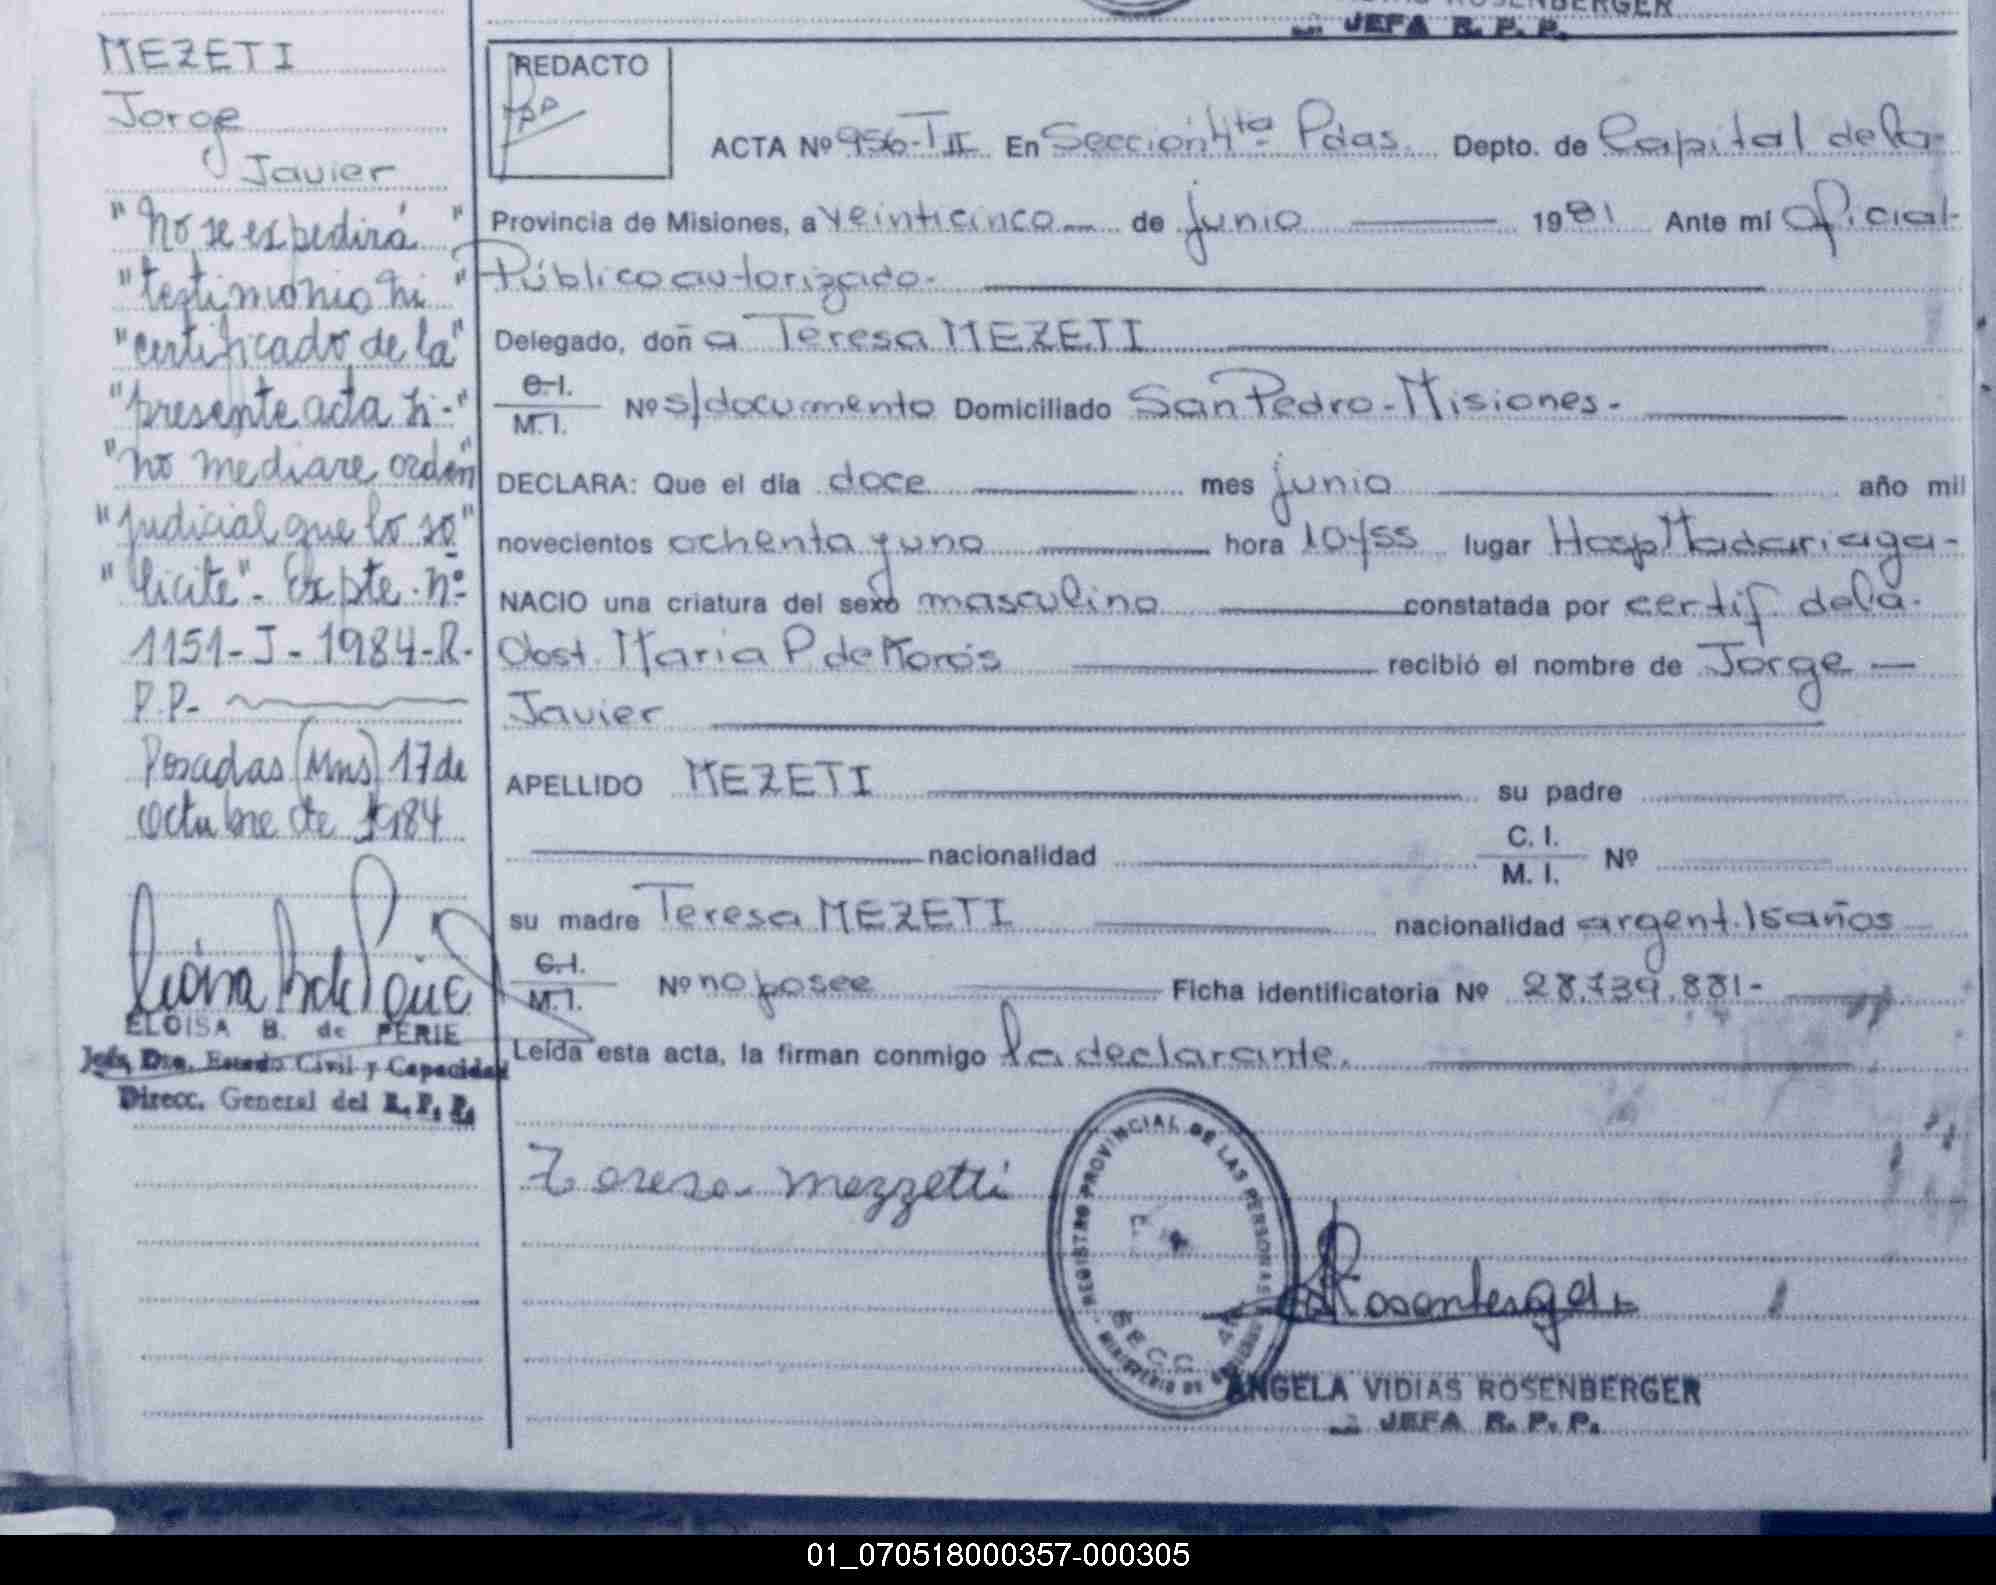 ROSENBERGER
JEFA R. P. P.
MEZETI
Jorge
Javier
"No se expedirá "
"testimonio ni "
"certificado de la"
"presente acta si-"
"no mediare orden
"judicial que lo so"
"licite"- Expte. Nº
1151-J-1984-R-
P.P.
Posadas (Mns) 17 de
octubre de 1984
ELOISA B. de PERIE
Jefa Dto. Estado Civil y Capacidad
Direcc. General del R. P. P.
REDACTO
ACTA Nº 956-TII En Sección 4ta Pdas. Depto. de Capital de la
Provincia de Misiones, a veinticinco de junio 1981 Ante mí Oficial
Público autorizado.
Delegado, doña Teresa MEZETI
C. I.
M. I.
Nº s/documento Domiciliado San Pedro-Misiones-
DECLARA: Que el día doce mes junio año mil
novecientos ochenta y uno hora 10/55 lugar Hosp Madariaga-
NACIO una criatura del sexo masculino constatada por certif de la
Obst. Maria P de Korós recibió el nombre de Jorge
Javier
APELLIDO MEZETI su padre
nacionalidad C. I.
M. I.
Nº
su madre Teresa MEZETI nacionalidad argent. 15 años
C. I.
M. I.
Nº no posee Ficha identificatoria Nº 28.739.881-
Leída esta acta, la firman conmigo la declarante.
Teresa Mezzetti
REGISTRO PROVINCIAL DE LAS PERSONAS
SECC. 4ta
MINISTERIO DE GOBIERNO
Rosenberger
ANGELA VIDIAS ROSENBERGER
JEFA R. P. P.
01_070518000357-000305